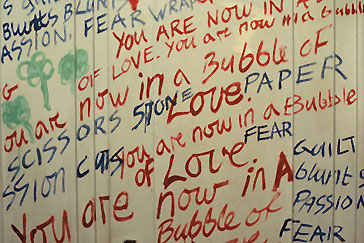 Blunts BLUNTS
ASSION, FEAR WRAP
YOU ARE NOW IN A
OF LOVE. You are now in a Bubble
G
You are now in a Bubble of
SCISSORS STONE Love. PAPER
SSION CUTS You are now in a Bubble
of Love. FEAR
GUILT
Blunts
You are now in A PASSION
Bubble of FEAR